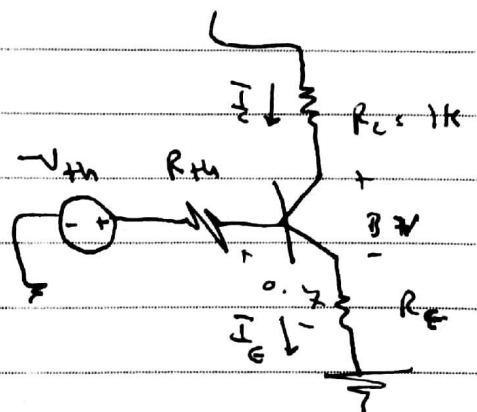 I_c ↓
R_c = 1k
V_th
R_th
- +
+
3 V
-
+
0.7
-
R_E
I_E ↓